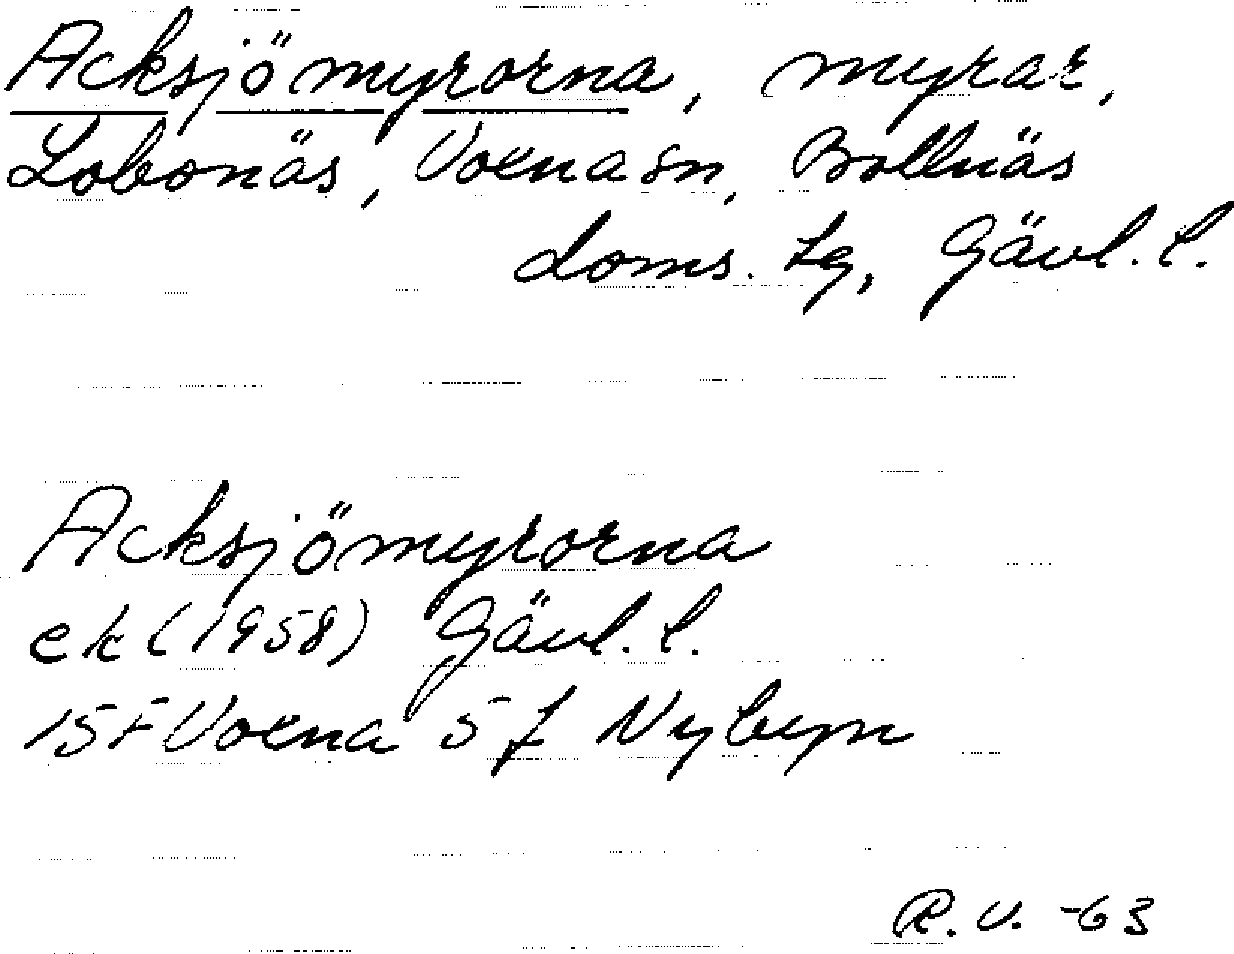 Acksjömyrorna, myrar,
Lobonäs, Voxna sn, Bollnäs
doms. Lg, Gävl. l.
Acksjömyrorna
ek (1958) Gävl. l.
15F Voxna 5 f Nybyn
R. V. -63